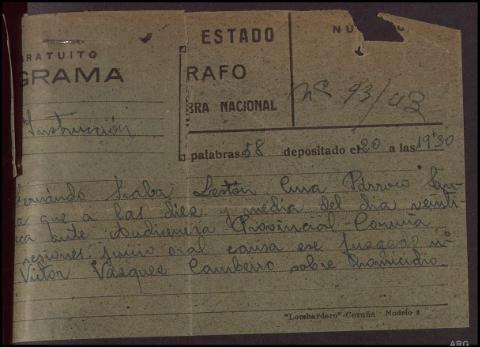 ESTADO
NÚ
GRATUITO
GRAMA
RAFO
BRA NACIONAL
nº 93/43
Instrucción
palabras 58 depositado el 20 a las 19'30
Fernando Lestón Cura Párroco
a que a las diez y media del día veinti
ante Audiencia Provincial Coruña
juicio oral causa ese Juzgado nº
Victor Vásquez Cambeiro sobre homicidio
"Lombardero"-Coruña - Modelo
ARG